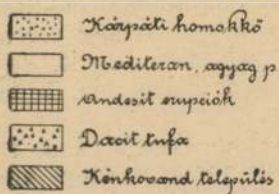 Kárpáti homokkő
Mediteran, agyag p
Andesit erupciók
Dacit tufa
Kénkovand település